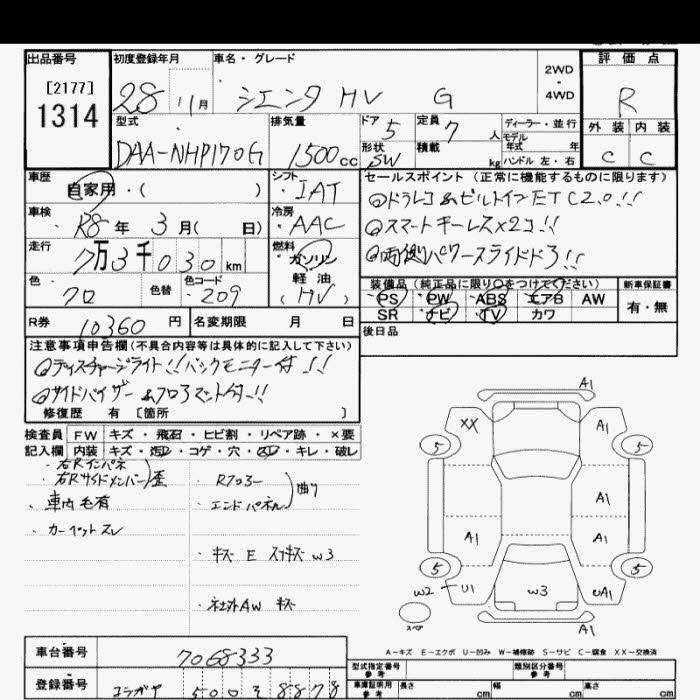 出品番号 初度登録年月 車名・グレード 2WD 評価点
[2177]
1314
28 11月 シエンタ HV G ・4WD R
型式 排気量 ドア 5 定員 7人 ディーラー・並行 外装 内装
モデル
DAA-NHP170G 1500cc 形状 SW 積載 kg 年式 年 ハンドル 左・右 C C
車歴 シフト セールスポイント (正常に機能するものに限ります)
自家用・( ) ・IAT ◎ドラレコ&ビルトインETC2.0!!
車検 冷房 ◎スマートキーレス×2コ!!
・R8年 3月( 日) ・AAC ◎両側パワースライドドア!!
走行 燃料
7万3千030km ガソリン
軽油
(HV)
色 色替 色コード
・クロ ・209
装備品 (純正品に限り○をつけてください) 新車保証書
PS PW ABS エアB AW 有・無
SR ナビ TV カワ
R券 10360円 名変期限 月 日 後日品
注意事項申告欄(不具合内容等は具体的に記入して下さい)
◎ディスチャージライト!!バックモニター付!!
◎サイドバイザー&フロアマット付!!
修復歴 有 [箇所 ]
検査員 FW キズ・飛石・ヒビ割・リペア跡・×要
記入欄 内装 キズ・汚レ・コゲ・穴・スレ・キレ・破レ
・右Rインパネ
右Rサイドメンバー)歪
・車内毛有
・カーペットスレ
・Rフロアー
・エンドパネル)曲り
・キズ E スリキズ W3
・ネジ外AW キズ
A1
XX A1
5 5
A1
A1 A1
5 5
W2 U1 W3 UA1
スペア A1
A-キズ E-エクボ U-凹み W-補修跡 S-サビ C-腐食 XX-交換済
車台番号 7068333
登録番号 500 8878
型式指定番号 参考 類別区分番号 参考
車庫証明用 参考 長さ cm 幅 cm 高さ cm